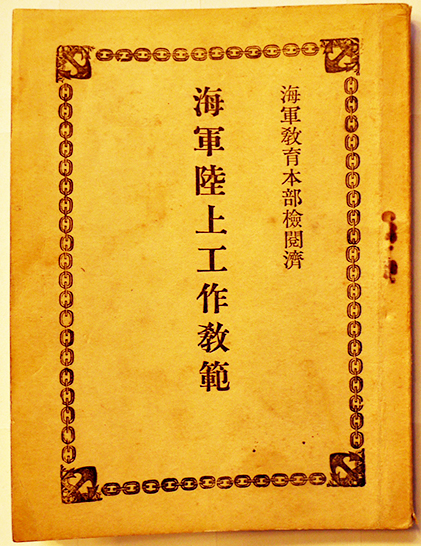 海軍教育本部檢閱濟
海軍陸上工作教範